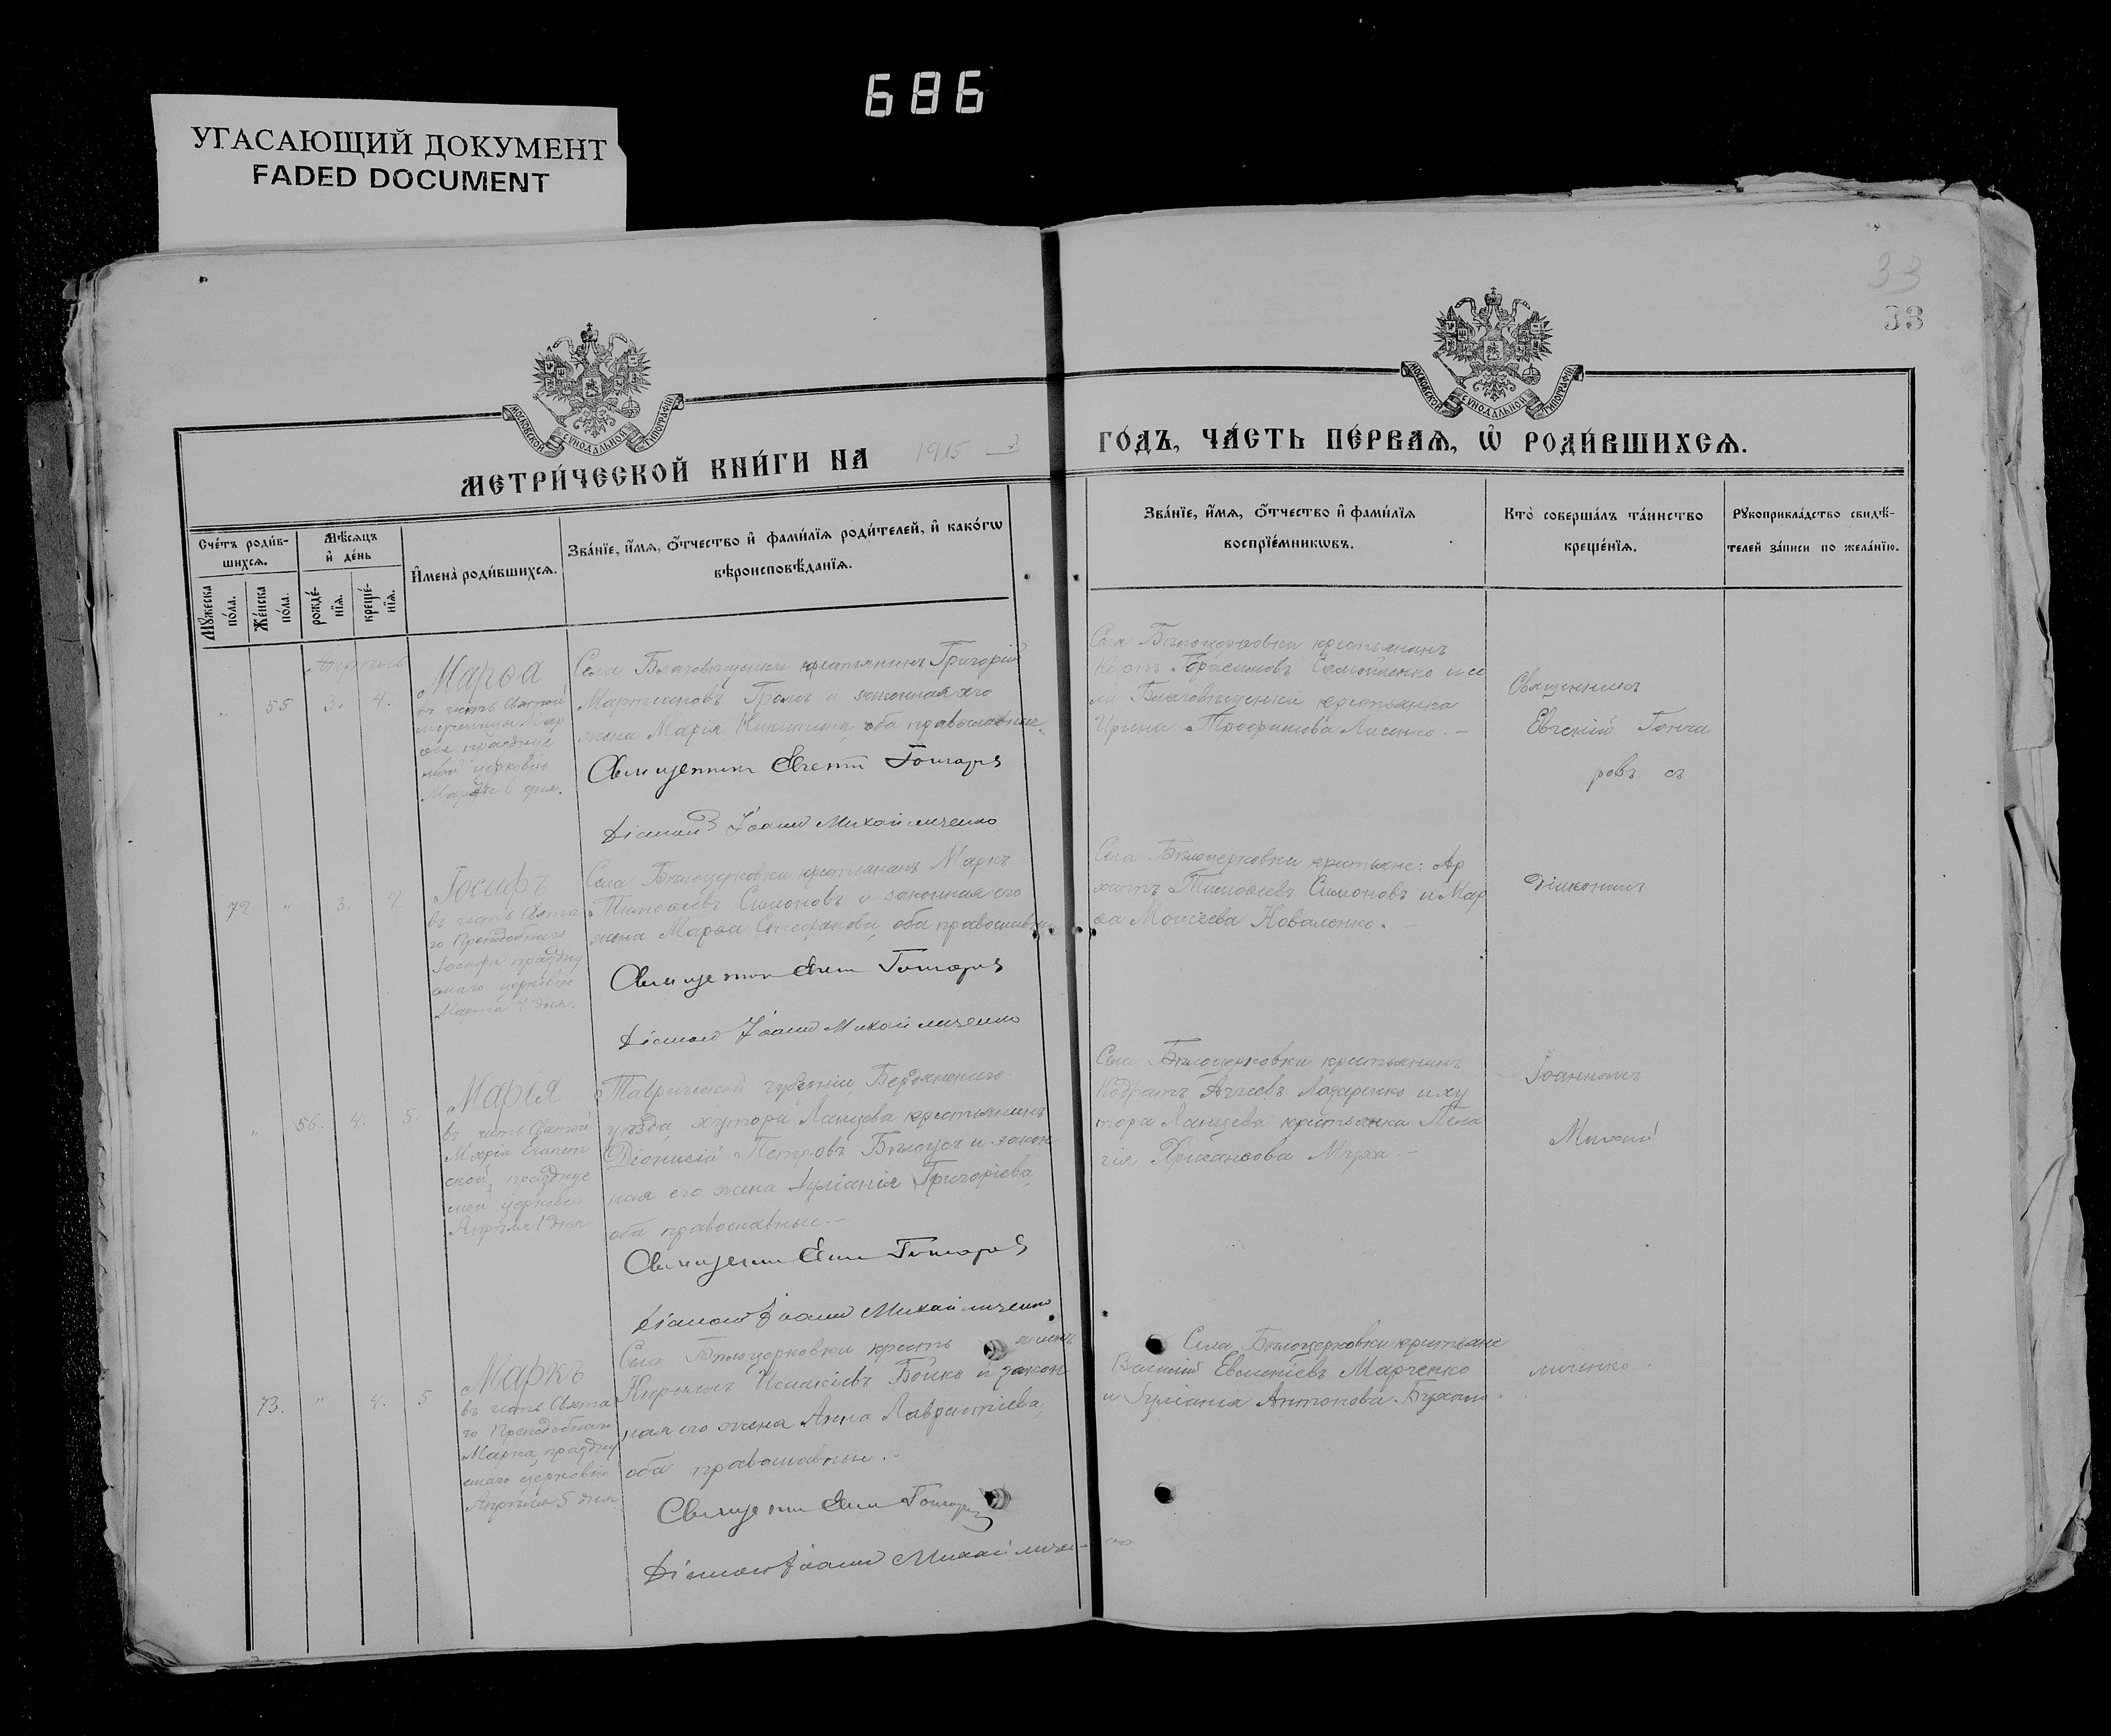 686
УГАСАЮЩИЙ ДОКУМЕНТ
FADED DOCUMENT
33
33
МОСКОВСКОЙ СѴНОДАЛЬНОЙ ТИПОГРАФІИ
МОСКОВСКОЙ СѴНОДАЛЬНОЙ ТИПОГРАФІИ
МЕТРИ́ЧЕСКОЙ КНИ́ГИ НА 1915
ГО́ДЪ, ЧА́СТЬ ПЕ́РВАѦ, Ѿ РОДИ́ВШИХСѦ.
Сче́тъ роди́в-
шихсѧ.
Мѣ́сѧцъ
и҆ де́нь
Мꙋ́жеска по́ла.
Же́нска по́ла.
рожде́-нїѧ.
креще́-нїѧ.
И҆мена̀ роди́вшихсѧ.
Зва́нїе, и҆́мѧ, ѻ҆́тчество и҆ фами́лїѧ роди́телей, и҆ како́гѡ
вѣроисповѣ́данїѧ.
Зва́нїе, и҆́мѧ, ѻ҆́тчество и҆ фами́лїѧ
воспрїе́мникѡвъ.
Кто̀ соверша́лъ та́инство
креще́нїѧ.
Рꙋкоприкла́дство свидѣ́-
телей за́писи по жела́нїю.
Апрѣль
" 55 3. 4.
Марѳа
въ честь Святой
мученицы Мар
ѳы празднуе
мой церковію
6 дня.
Села Благовѣщенки крестьянинъ Григорій
и законная его
жена Марія Никитина, оба православные.
Священникъ Евгеній Гончаровъ
Діаконъ Іоаннъ Михайличенко
Села Бѣлоцерковки крестьянинъ
Герасимовъ Самойленко и се
ла Благовѣщенки крестьянка
Ирина Трофимова Лисенко.-
Священникъ
Евгеній Гонча
ровъ съ
72 " 3. 4.
Іосифъ
въ честь Свята
го Преподобнаго
Іосифа праздну
емаго церковію
4 дня.
Села Бѣлоцерковки крестьянинъ Маркъ
Тимоѳеевъ Симоновъ и законная его
жена Марѳа Стефанова, оба православные
Священникъ Евгеній Гончаровъ
Діаконъ Іоаннъ Михайличенко
Села Бѣлоцерковки крестьяне: Ар
Тимоѳеевъ Симоновъ и Мар
ѳа Моисеева Коваленко.-
Діакономъ
" 56. 4. 5.
Марія
въ честь Святой
Маріи Египет
ской, празднуе
мой церковію
Апрѣля 1 дня
Таврической губерніи, Бердянскаго
уѣзда, хутора Ланцева крестьянинъ
Діонисій Петровъ Бѣлоусъ и закон
ная его жена Іуліанія Григоріева,
оба православные.-
Священникъ Евгеній Гончаровъ
Діаконъ Іоаннъ Михайличенко
Села Бѣлоцерковки крестьянинъ
Кодратъ Лазаренко и ху
тора Ланцева крестьянка Пела
гія Хрисанѳова Муха.-
Іоанномъ
Михай
73. " 4. 5
Маркъ
въ честь Свята
го Преподобнаго
Марка, праздну
емаго церковію
Апрѣля 5 дня
Села Бѣлоцерковки крестьянинъ
Кириллъ Исаакіевъ Бойко и закон
ная его жена Анна Лаврентіева,
оба православные.-
Священникъ Евгеній Гончаровъ
Діаконъ Іоаннъ Михайличенко
Села Бѣлоцерковки крестьяне
Василій Евменіевъ Марченко
и Іуліанія Антонова
личенко.